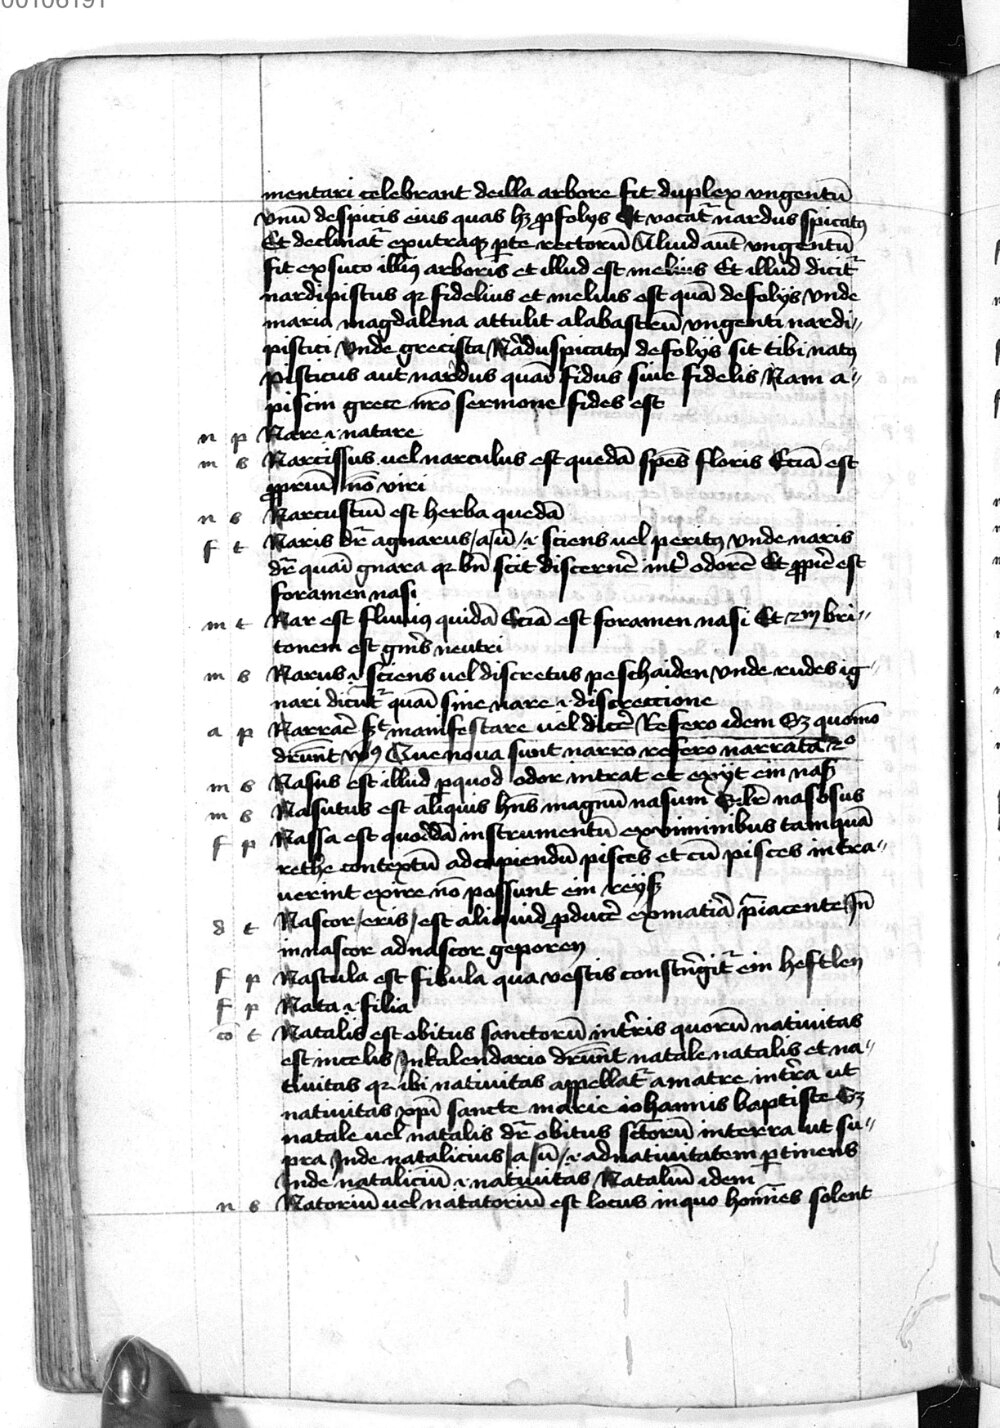 00106191
mentari celebrant de illa arbore fit duplex vngentū
vnū de spicis eius quas hꝫ ꝓ folys Et vocat᷑ nardus spicatꝰ
Et declinat᷑ ex utraqꝫ ꝑte rectorū Aliud aūt vngentū
fit ex suco illiꝰ arboris et illud est melius Et illud dicit᷑
nardipistus qꝛ fidelius et melius est quā de folijs vnde
maria magdalena attulit alabastrū vngenti nardi⸗
pistici vnde grecista Nāduspicatꝰ de folijs sit tibi natꝰ
pisticus aut nardus quasi fidus siue fidelis Nam a⸗
piscin grece nr̄o sermone fides est
n p Nare .i. natare
m s Narcissus uel narculus est quedā sp̄es floris Eciā est
ꝓpriū nō viri
n s Narcustiū est herba quedā
f t Naris dr̄ a gnarus /a /ū /.i. sciens uel peritꝰ vnde naris
dr̄ quasi gnara qꝛ bn̄ scit discernē̄ int̄ odorē Et ꝓpiē est
foramen nasi
m t Nar est fluuiꝰ quidā Eciā est foramen nasi Et 2m bri⸗
tonem est gn̄is neutri
m s Narus .i. sciens uel discretus peschaiden vnde rudes ig⸗
nari dicūt᷑ quasi sine nare .i. discrecione
a p Narrare est manifestare uel dicē̄ Refero idem Sꝫ quomō
dr̄unt vsꝰ Que noua sunt narro refero narrata 2º
m s Nasus est illud per quod odor intrat et exijt ein nas
m s Nasutus est aliquis hn̄s magnū nasum nasosus
f p Nassa est quoddā instrumentū ex viminibus tamquā
rethe contextū ad capiendū pisces et cū pisces intra⸗
uerint exire nō possunt ein reyß
d t Nascor /eris /est aliquid ꝓducē̄ ex matiā p̄iacente In̄
innascor adnascor geporen
f p Nastula est fibula qua vestis constrīgit᷑ ein heftlen
f p Nata .i. filia
cō t Natalis est obitus sanctorū in tr̄is quorū natiuitas
est in celis In kalendario dr̄unt natale natalis et na⸗
tiuitas qꝛ ibi natiuitas appellat᷑ a matre in tr̄a ut
natiuitas xp̄i sancte marie iohannis baptiste Sꝫ
natale uel natalis dr̄ obitus sc̄torū in terra ut su⸗
pra Inde natalicius /a /ū /.i. ad natiuitatem ꝑtinens
Inde nataliciū .i. natiuitas Nataliū idem
n s Natoriū uel natatoriū est locus in quo homines solent